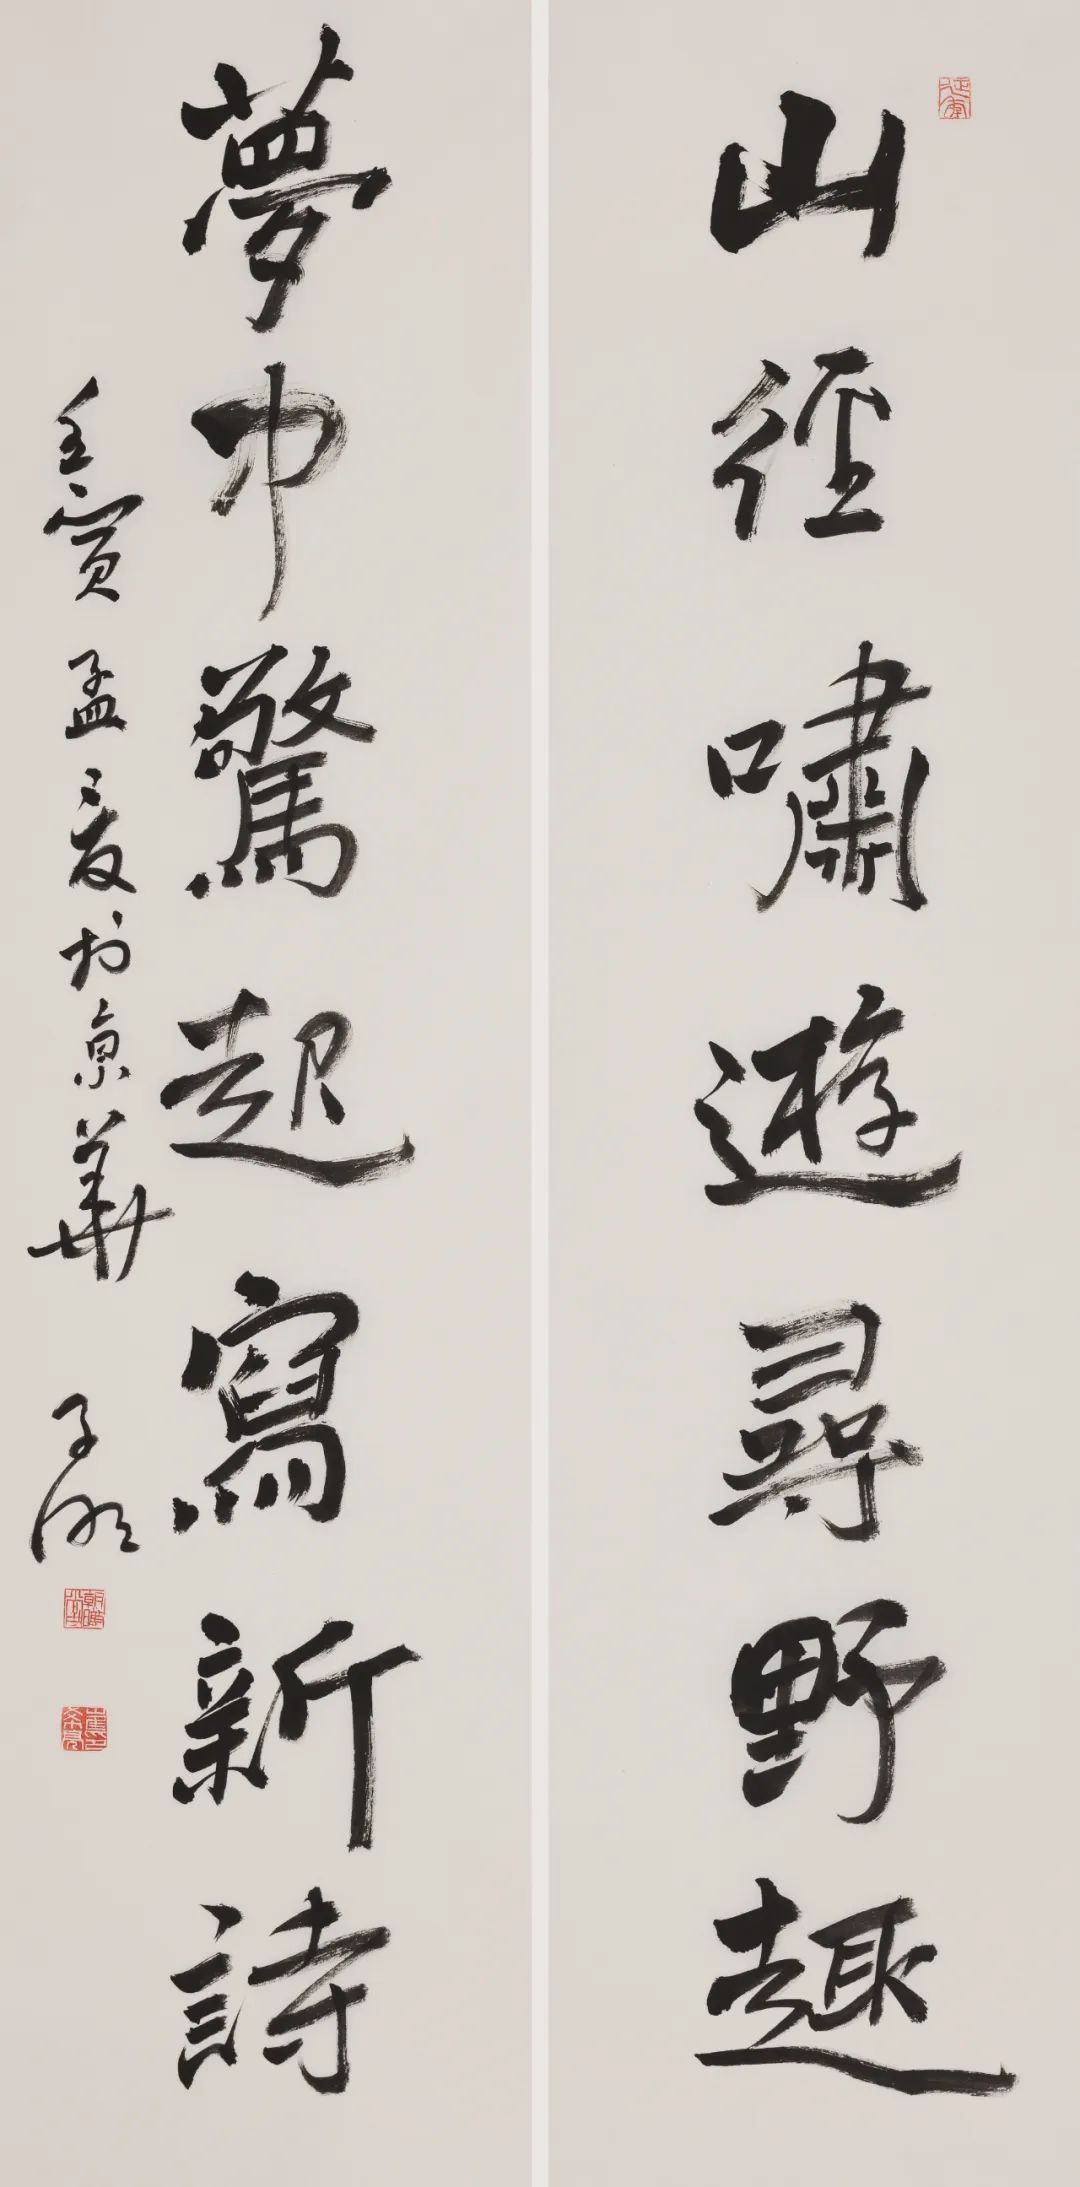 山徑嘯遊尋野趣
夢中驚起寫新詩
壬寅孟夏於京華